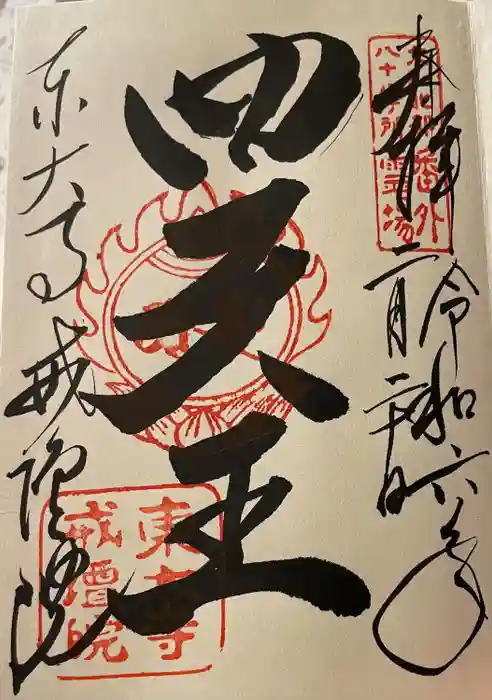 奉拝
令和六年
二月
四天王
東大寺
戒壇院
番外
八十八ヶ所霊場
東大寺
戒壇院